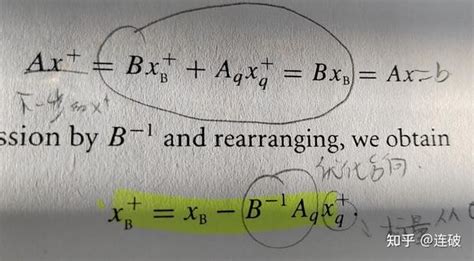 Ax⁺ = Bx_B⁺ + A_q x_q⁺ = Bx_B = Ax = b
下一步的x⁺
ssion by B⁻¹ and rearranging, we obtain
优化方向.
x_B⁺ = x_B − B⁻¹A_q x_q⁺.
知乎 @连破